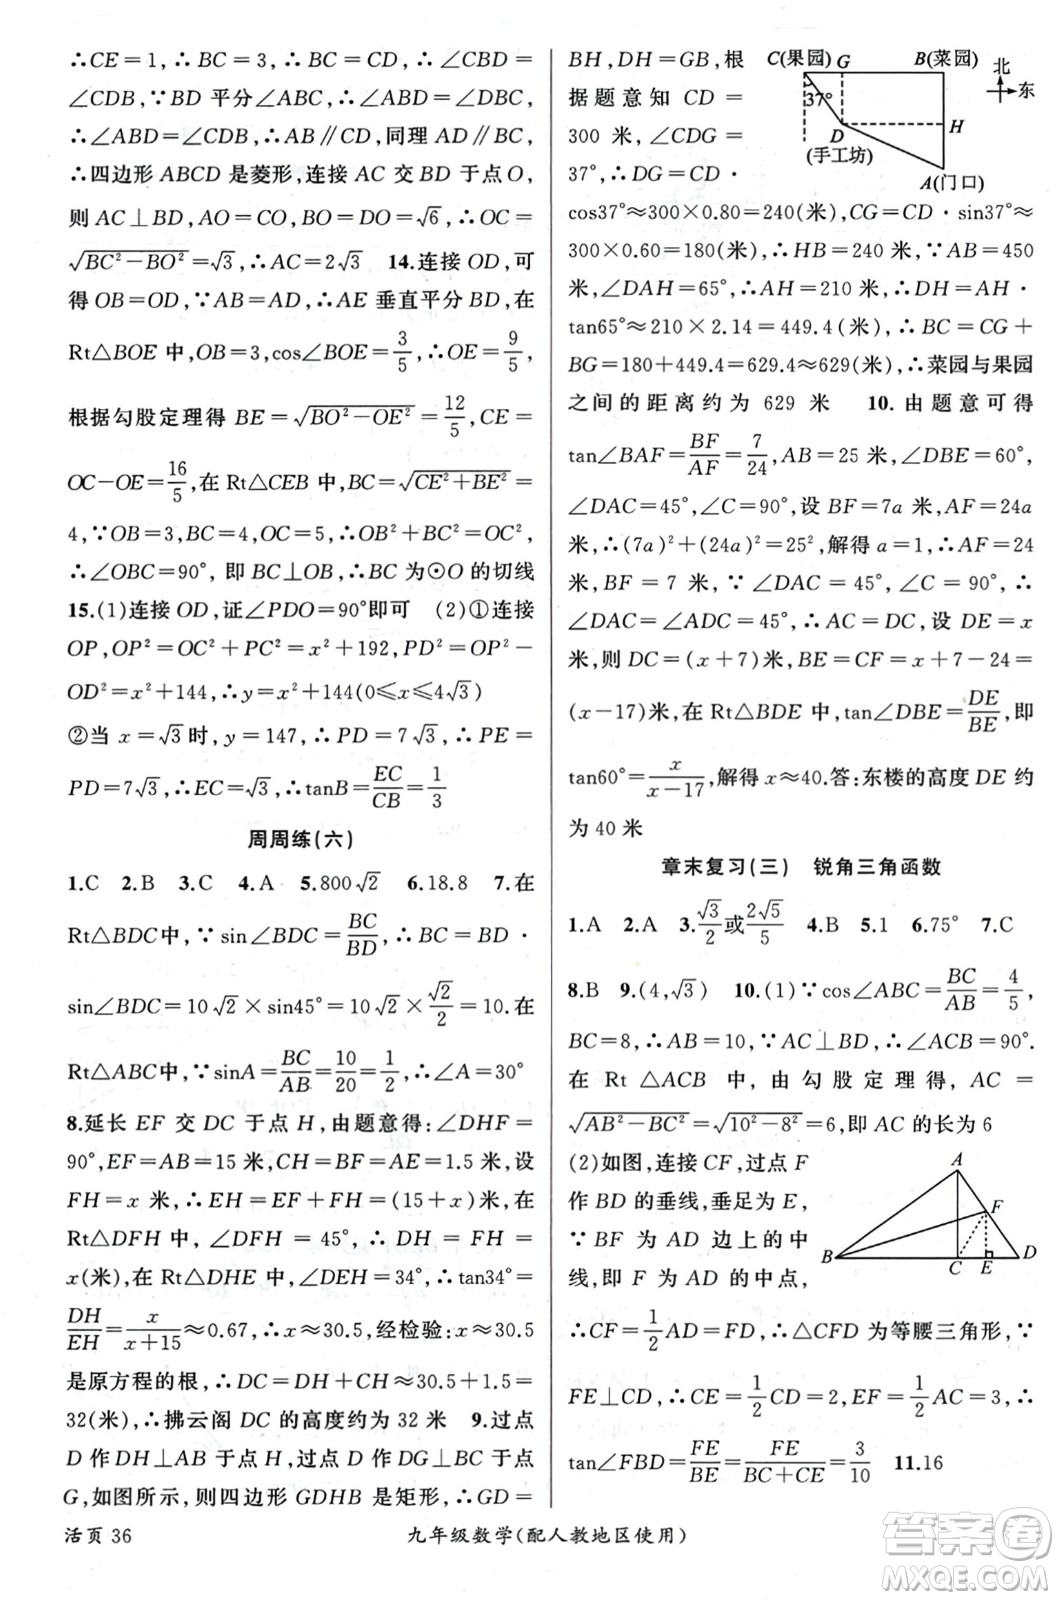 ∴CE=1,∴BC=3,∴BC=CD,∴∠CBD=
∠CDB,∵BD 平分∠ABC,∴∠ABD=∠DBC,
∴∠ABD=∠CDB,∴AB∥CD,同理 AD∥BC,
∴四边形 ABCD 是菱形,连接 AC 交 BD 于点O,
则 AC⊥BD,AO=CO,BO=DO=√6,∴OC=
√(BC²-BO²)=√3,∴AC=2√3 14.连接 OD,可
得 OB=OD,∵AB=AD,∴AE 垂直平分 BD,在
Rt△BOE 中,OB=3,cos∠BOE=3/5,∴OE=9/5,
根据勾股定理得 BE=√(BO²-OE²)=12/5,CE=
OC-OE=16/5,在 Rt△CEB 中,BC=√(CE²+BE²)=
4,∵OB=3,BC=4,OC=5,∴OB²+BC²=OC²,
∴∠OBC=90°,即 BC⊥OB,∴BC 为⊙O 的切线
15.(1)连接 OD,证∠PDO=90°即可 (2)①连接
OP,OP²=OC²+PC²=x²+192,PD²=OP²-
OD²=x²+144,∴y=x²+144(0≤x≤4√3)
②当 x=√3时,y=147,∴PD=7√3,∴PE=
PD=7√3,∴EC=√3,∴tanB=EC/CB=1/3
周周练(六)
1.C 2.B 3.C 4.A 5.800√2 6.18.8 7.在
Rt△BDC中,∵sin∠BDC=BC/BD,∴BC=BD·
sin∠BDC=10√2×sin45°=10√2×√2/2=10.在
Rt△ABC中,∵sinA=BC/AB=10/20=1/2,∴∠A=30°
8.延长 EF 交 DC 于点 H,由题意得:∠DHF=
90°,EF=AB=15 米,CH=BF=AE=1.5 米,设
FH=x 米,∴EH=EF+FH=(15+x)米,在
Rt△DFH 中,∠DFH=45°,∴DH=FH=
x(米),在 Rt△DHE 中,∠DEH=34°,∴tan34°=
DH/EH=x/(x+15)≈0.67,∴x≈30.5,经检验:x≈30.5
是原方程的根,∴DC=DH+CH≈30.5+1.5=
32(米),∴拂云阁 DC 的高度约为 32 米 9.过点
D 作 DH⊥AB 于点 H,过点 D 作 DG⊥BC 于点
G,如图所示,则四边形 GDHB 是矩形,∴GD=
BH,DH=GB,根
据题意知 CD=
300 米,∠CDG=
37°,∴DG=CD·
C(果园)
G
B(菜园)
北
东
37°
D
(手工坊)
H
A(门口)
cos37°≈300×0.80=240(米),CG=CD·sin37°≈
300×0.60=180(米),∴HB=240 米,∵AB=450
米,∠DAH=65°,∴AH=210 米,∴DH=AH·
tan65°≈210×2.14=449.4(米),∴BC=CG+
BG=180+449.4=629.4≈629(米),∴菜园与果园
之间的距离约为 629 米 10.由题意可得
tan∠BAF=BF/AF=7/24,AB=25 米,∠DBE=60°,
∠DAC=45°,∠C=90°,设 BF=7a 米,AF=24a
米,∴(7a)²+(24a)²=25²,解得 a=1,∴AF=24
米,BF=7 米,∵∠DAC=45°,∠C=90°,∴
∠DAC=∠ADC=45°,∴AC=DC,设 DE=x
米,则 DC=(x+7)米,BE=CF=x+7-24=
(x-17)米,在 Rt△BDE 中,tan∠DBE=DE/BE,即
tan60°=x/(x-17),解得 x≈40.答:东楼的高度 DE 约
为 40 米
章末复习(三) 锐角三角函数
1.A 2.A 3.√3/2或2√5/5 4.B 5.1 6.75° 7.C
8.B 9.(4,√3) 10.(1)∵cos∠ABC=BC/AB=4/5,
BC=8,∴AB=10,∵AC⊥BD,∴∠ACB=90°.
在 Rt △ACB 中,由勾股定理得,AC=
√(AB²-BC²)=√(10²-8²)=6,即 AC 的长为 6
(2)如图,连接 CF,过点 F
作 BD 的垂线,垂足为 E,
∵BF 为 AD 边上的中
线,即 F 为 AD 的中点,
A
F
B
C
E
D
∴CF=1/2AD=FD,∴△CFD 为等腰三角形,∵
FE⊥CD,∴CE=1/2CD=2,EF=1/2AC=3,∴
tan∠FBD=FE/BE=FE/(BC+CE)=3/10 11.16
活页 36 九年级数学(配人教地区使用)
答案
MXQE.COM